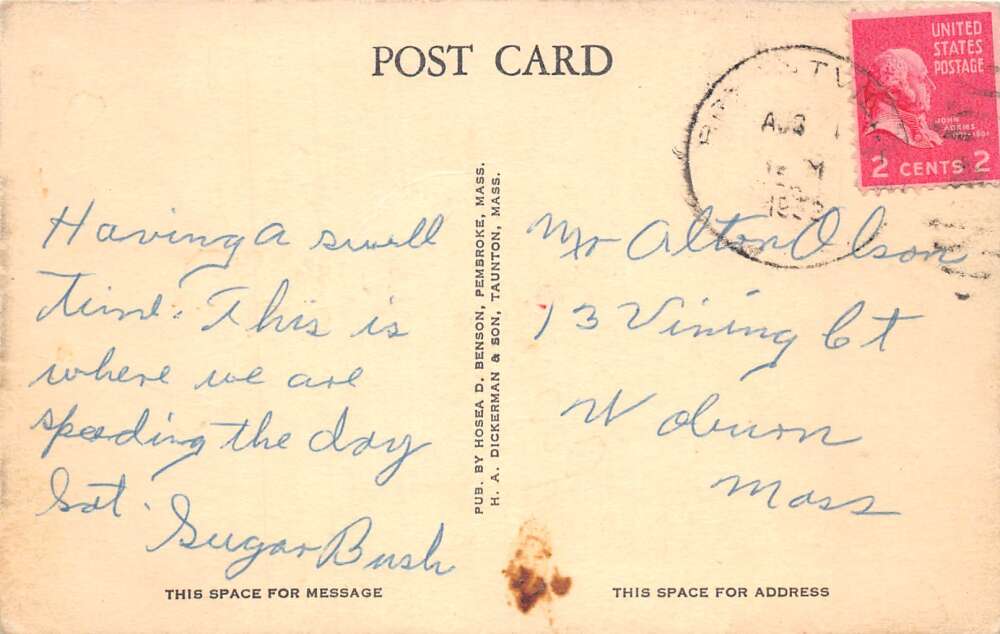 POST CARD
UNITED
STATES
POSTAGE
JOHN
ADAMS
2 CENTS 2
AUG
Having A swell
time. This is
where we are
speeding the day
Sat.
Sugar Bush
PUB. BY HOSEA D. BENSON, PEMBROKE, MASS.
H. A. DICKERMAN & SON, TAUNTON, MASS.
Mr Alton Olson
13 Vining Ct
Woburn
Mass
THIS SPACE FOR MESSAGE
THIS SPACE FOR ADDRESS